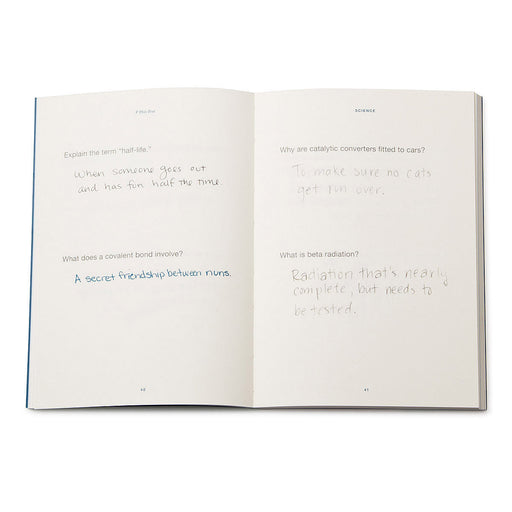 F this Test
Explain the term "half-life."
When someone goes out
and has fun half the time.
What does a covalent bond involve?
A secret friendship between nuns.
40
SCIENCE
Why are catalytic converters fitted to cars?
To make sure no cats
get run over.
What is beta radiation?
Radiation that's nearly
complete, but needs to
be tested.
41